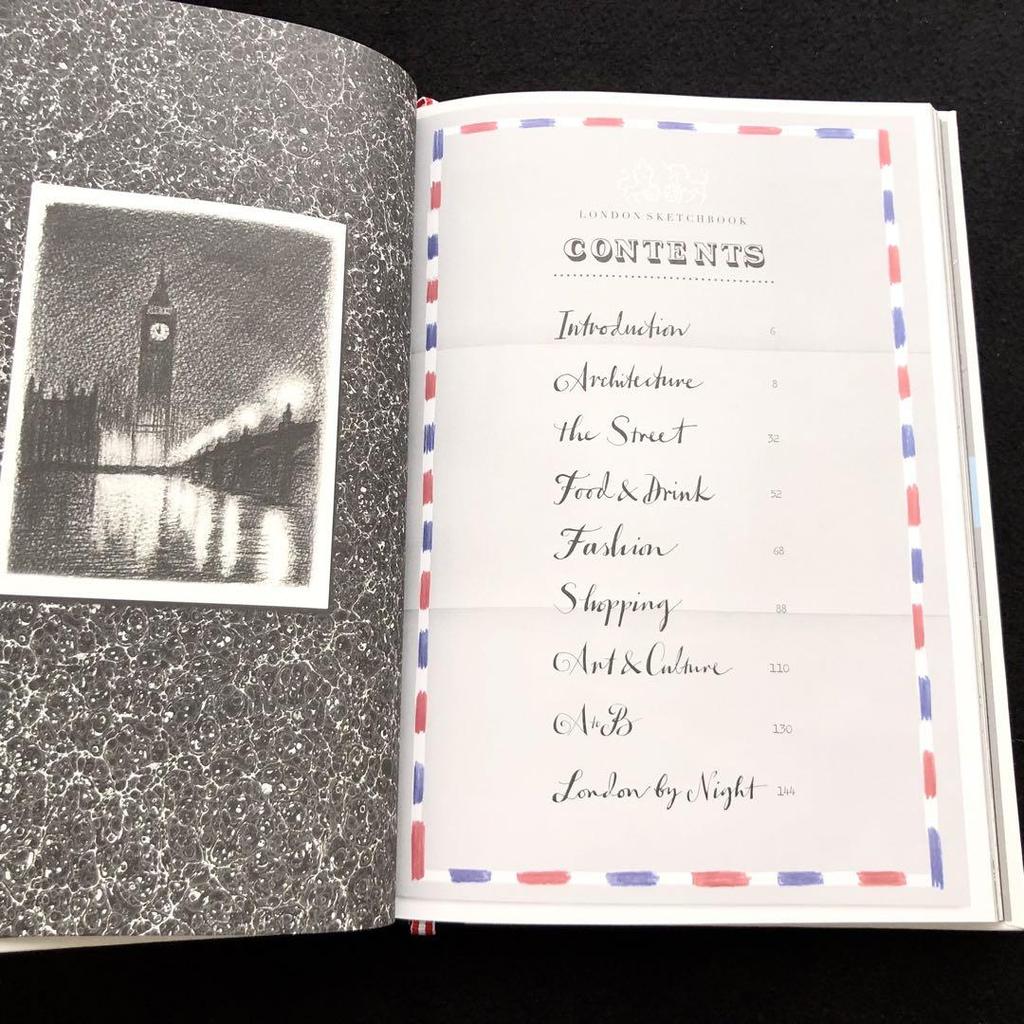 LONDON SKETCHBOOK
CONTENTS
Introduction 6
Architecture 8
the Street 32
Food & Drink 52
Fashion 68
Shopping 88
Art & Culture 110
A to B 130
London by Night 144